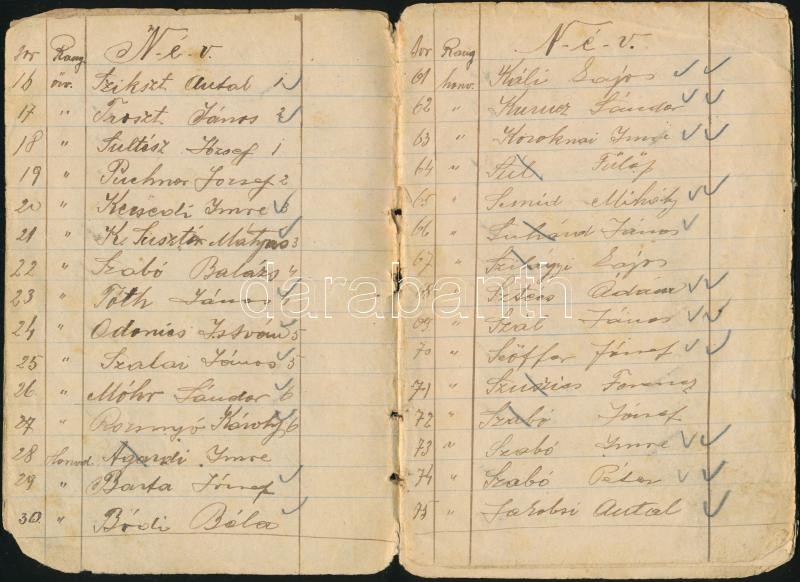 Sor Rang N-é-v.
16 őrv. Szikszt Antal 1
17 " Troszt János 2
18 " Sultész József 1
19 " Puchner József 2
20 " Imre 3
21 " K. Susztár Mátyás 3
22 " Szabó Balázs 4
23 " Tóth János 4
24 " Adonics István 5
25 " Szalai János 5
26 " Móhr Sándor 6
27 " Rozsnyó Károly 6
28 Honvéd Agardi Imre
29 " Barta József
30 " Bódi Béla
Sor Rang N-é-v.
61 honv. Káli Lajos
62 " Kurucz Sándor
63 " Koroknai Imre
64 " Fülöp
65 " Smid Mihály
66 " János
67 " Szilágyi Lajos
68 " Ádám
69 " János
70 " Söffer József
71 " Ferencz
72 " Szabó József
73 " Szabó Imre
74 " Szabó Péter
75 " Antal
darabanth